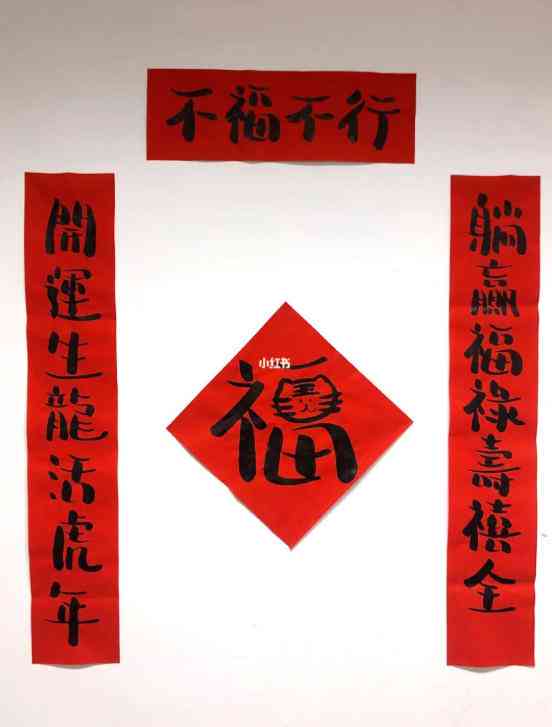 不福不行
躺赢福祿壽禧全
開運生龍活虎年
小红书
福